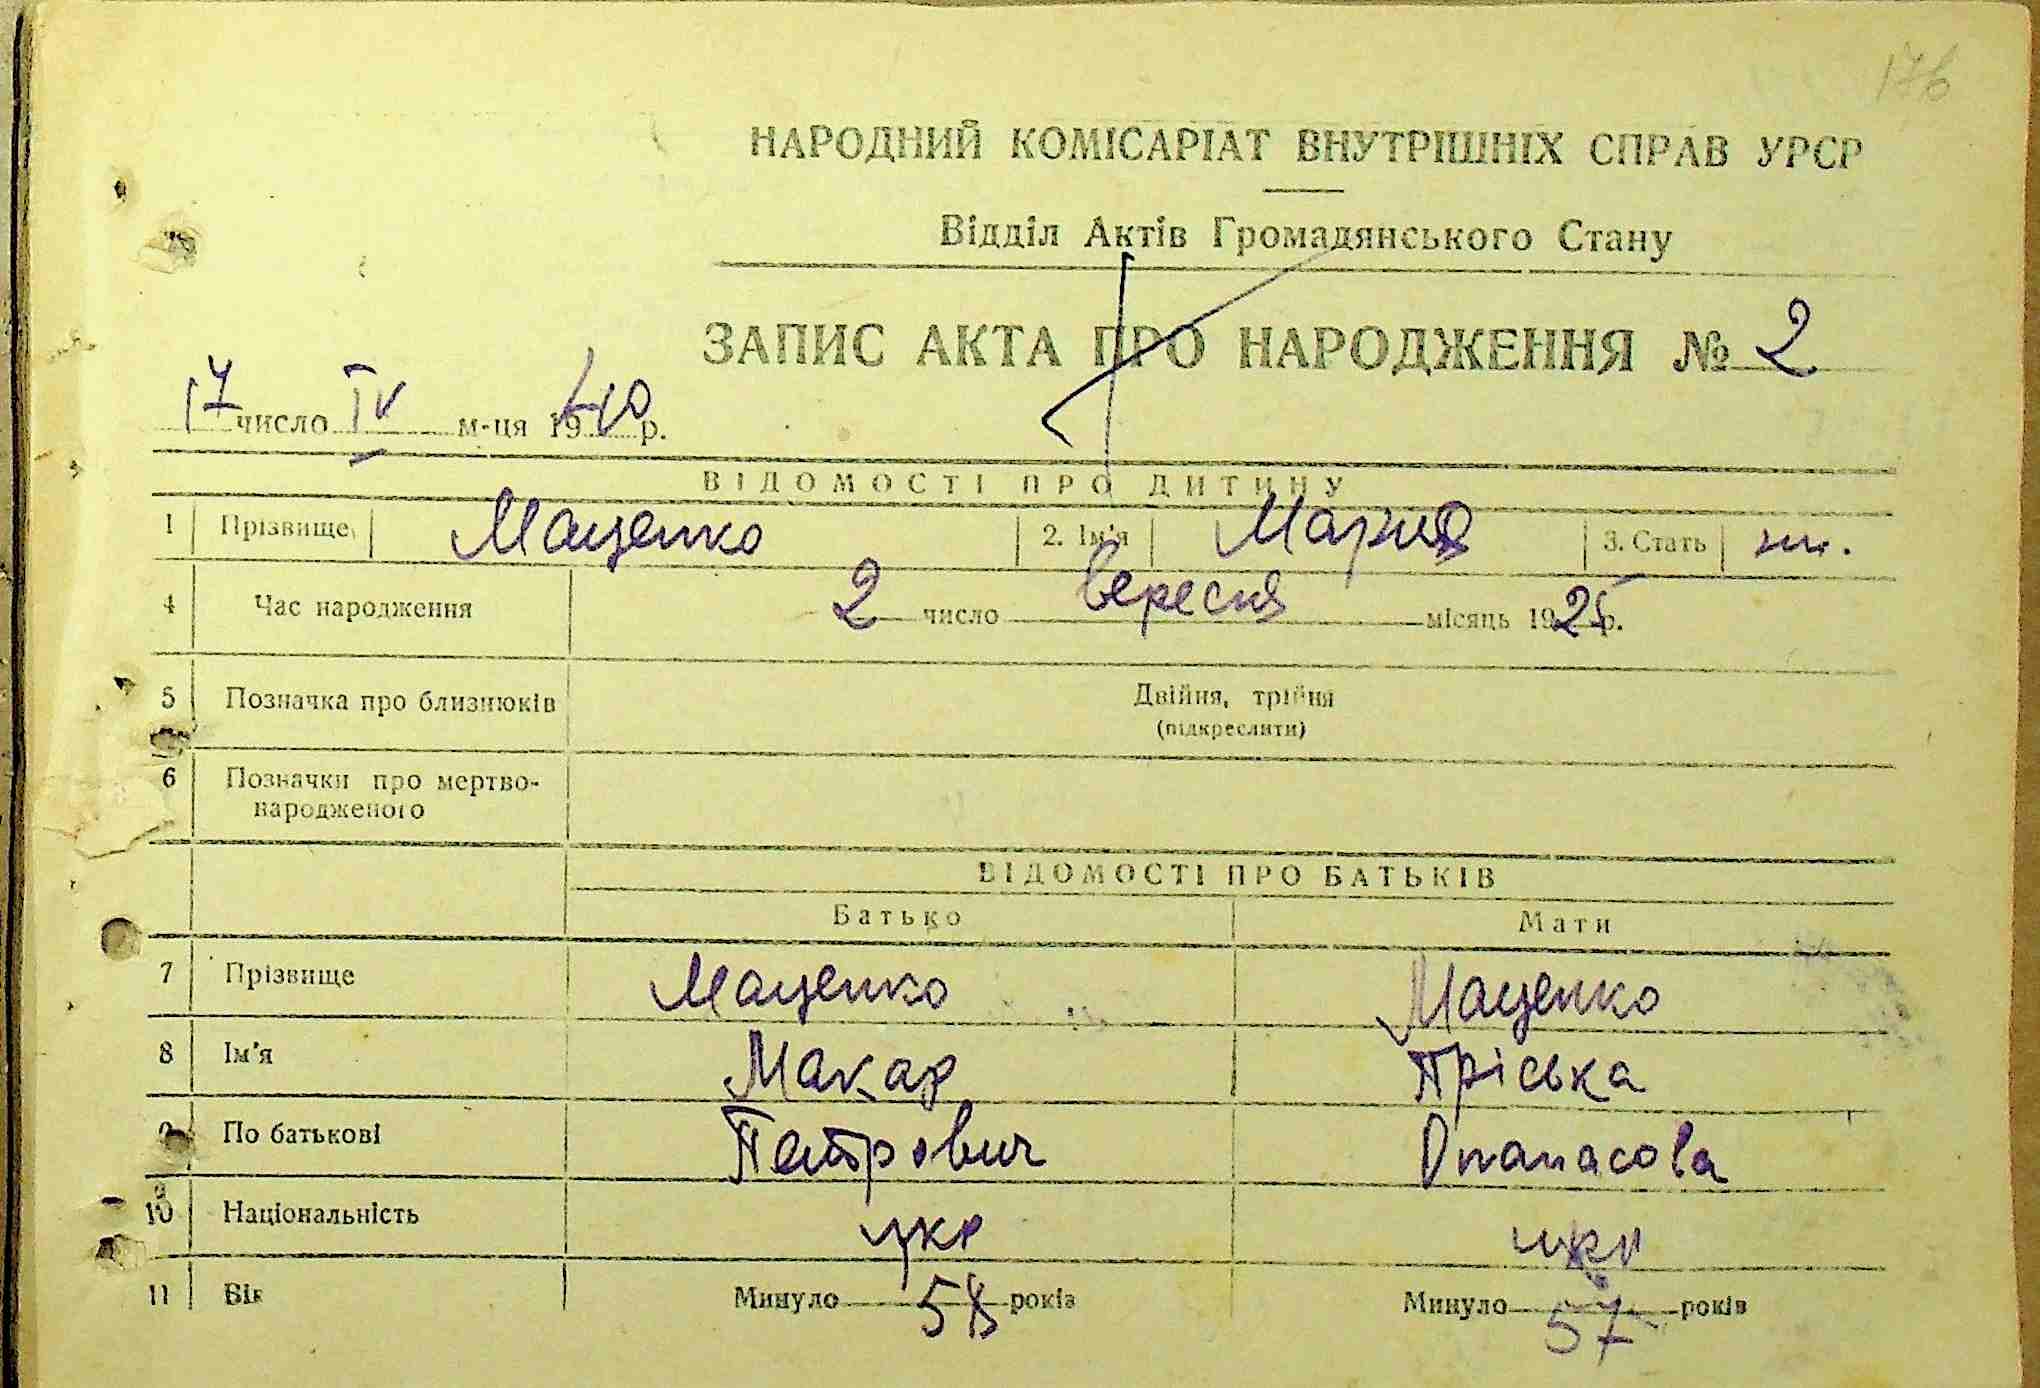 176
НАРОДНИЙ КОМІСАРІАТ ВНУТРІШНІХ СПРАВ УРСР
Відділ Актів Громадянського Стану
ЗАПИС АКТА ПРО НАРОДЖЕННЯ № 2
17 число IV м-ця 1940 р.
ВІДОМОСТІ ПРО ДИТИНУ
1 Прізвище Маценко 2. Ім'я Мария 3. Стать
4 Час народження 2 число вересня місяць 1925 р.
5 Позначка про близнюків Двійня, трійня
(підкреслити)
6 Позначки про мертво-
народженого
ВІДОМОСТІ ПРО БАТЬКІВ
Батько Мати
7 Прізвище Маценко Маценко
8 Ім'я Макар Пріська
9 По батькові Петрович Опанасова
10 Національність укр укр
11 Вік Минуло 58 років Минуло 57 років